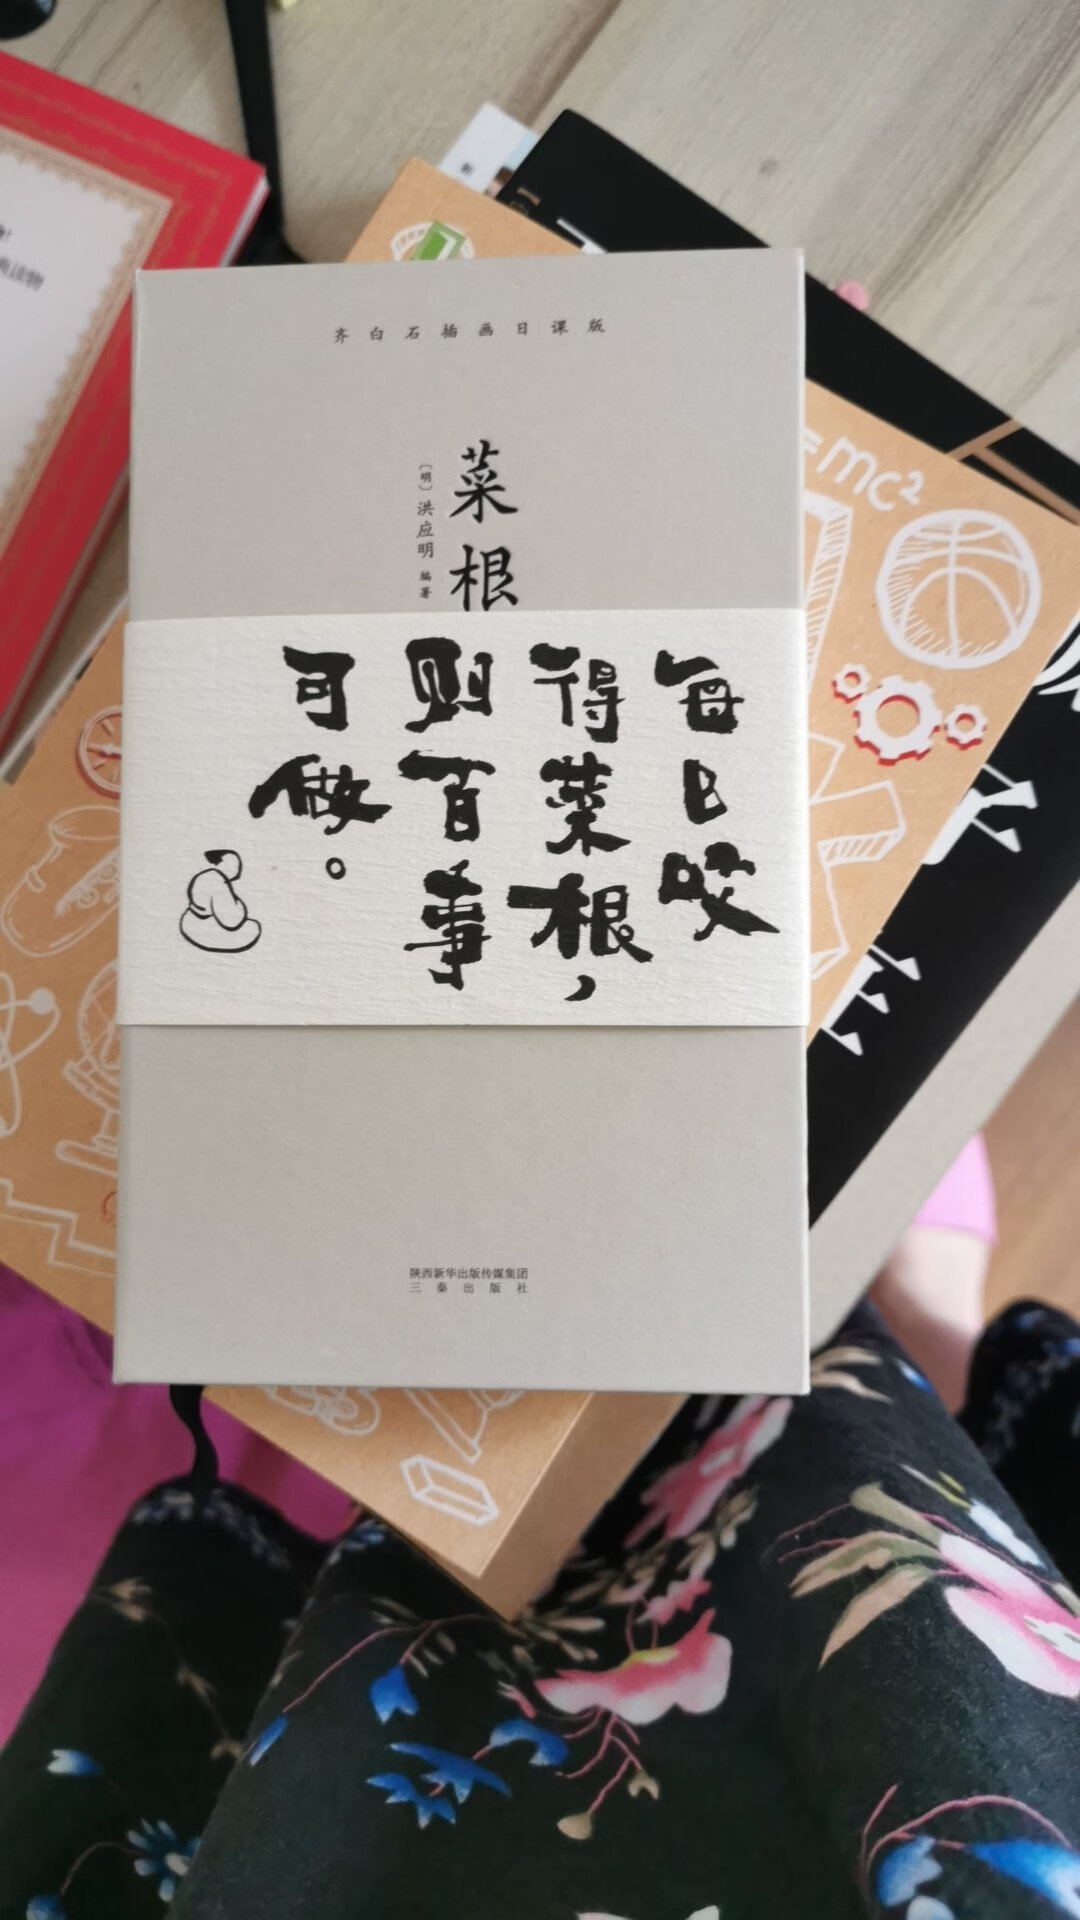 齐白石插画日课版
菜根
〔明〕洪应明 编著
每日咬
得菜根，
则百事
可做。
陕西新华出版传媒集团
三秦出版社
=mc²
典读物